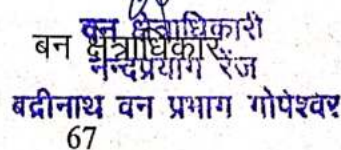 वन क्षेत्राधिकारी
बन क्षेत्राधिकारी
नन्दप्रयाग रेंज
बद्रीनाथ वन प्रभाग गोपेश्वर
67